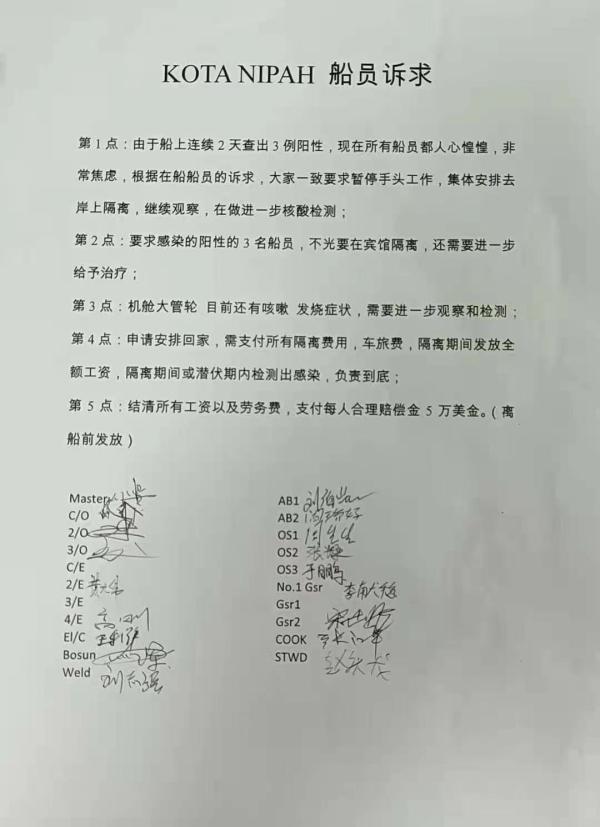 KOTA NIPAH 船员诉求
第1点：由于船上连续2天查出3例阳性，现在所有船员都人心惶惶，非
常焦虑，根据在船船员的诉求，大家一致要求暂停手头工作，集体安排去
岸上隔离，继续观察，在做进一步核酸检测；
第2点：要求感染的阳性的3名船员，不光要在宾馆隔离，还需要进一步
给予治疗；
第3点：机舱大管轮 目前还有咳嗽 发烧症状，需要进一步观察和检测；
第4点：申请安排回家，需支付所有隔离费用，车旅费，隔离期间发放全
额工资，隔离期间或潜伏期内检测出感染，负责到底；
第5点：结清所有工资以及劳务费，支付每人合理赔偿金5万美金。（离
船前发放）
Master
C/O
2/O
3/O
C/E
2/E
3/E
4/E
El/C
Bosun
Weld
AB1
AB2
OS1
OS2
OS3 于鹏
No.1 Gsr
Gsr1
Gsr2
COOK
STWD